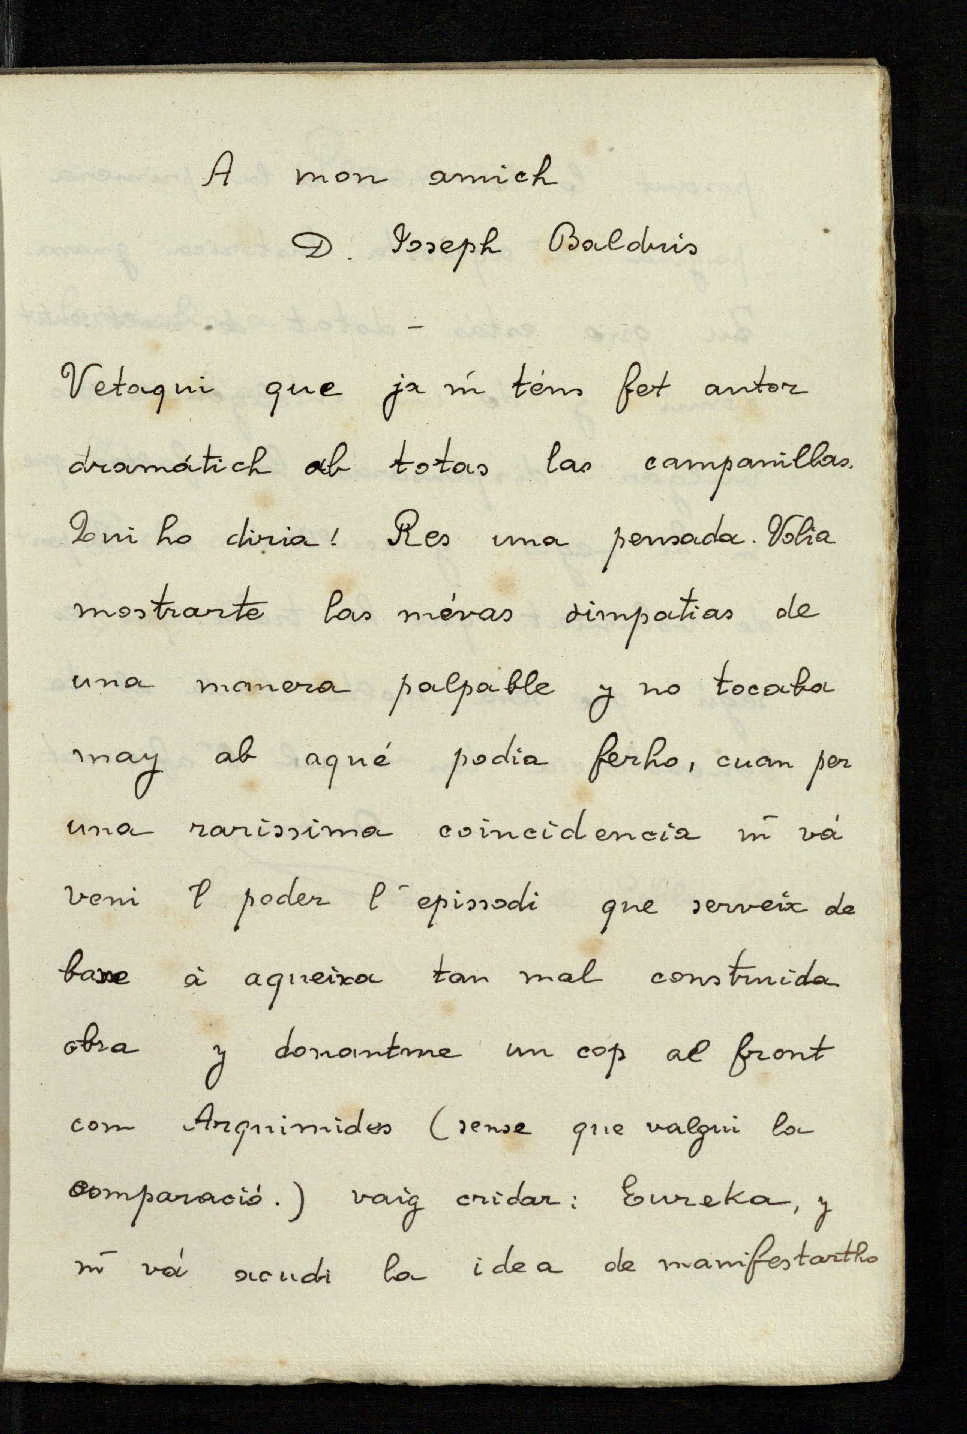 A mon amich
D. Joseph Baldris
—
Vetaqui que ja m' téns fet autor
dramátich ab totas las campanillas.
Qui ho diria! Res una pensada. Volia
mostrarte las mévas simpatias de
una manera palpable y no tocaba
may ab aqué podia ferho, cuan per
una raríssima coincidencia m' vá
veni l' poder l' epissodi que serveix de
base á aqueixa tan mal construida
obra y donantme un cop al front
com Arquimides (sense que valgui la
comparació.) vaig cridar: Eureka, y
m' vá acudi la idea de manifestartho